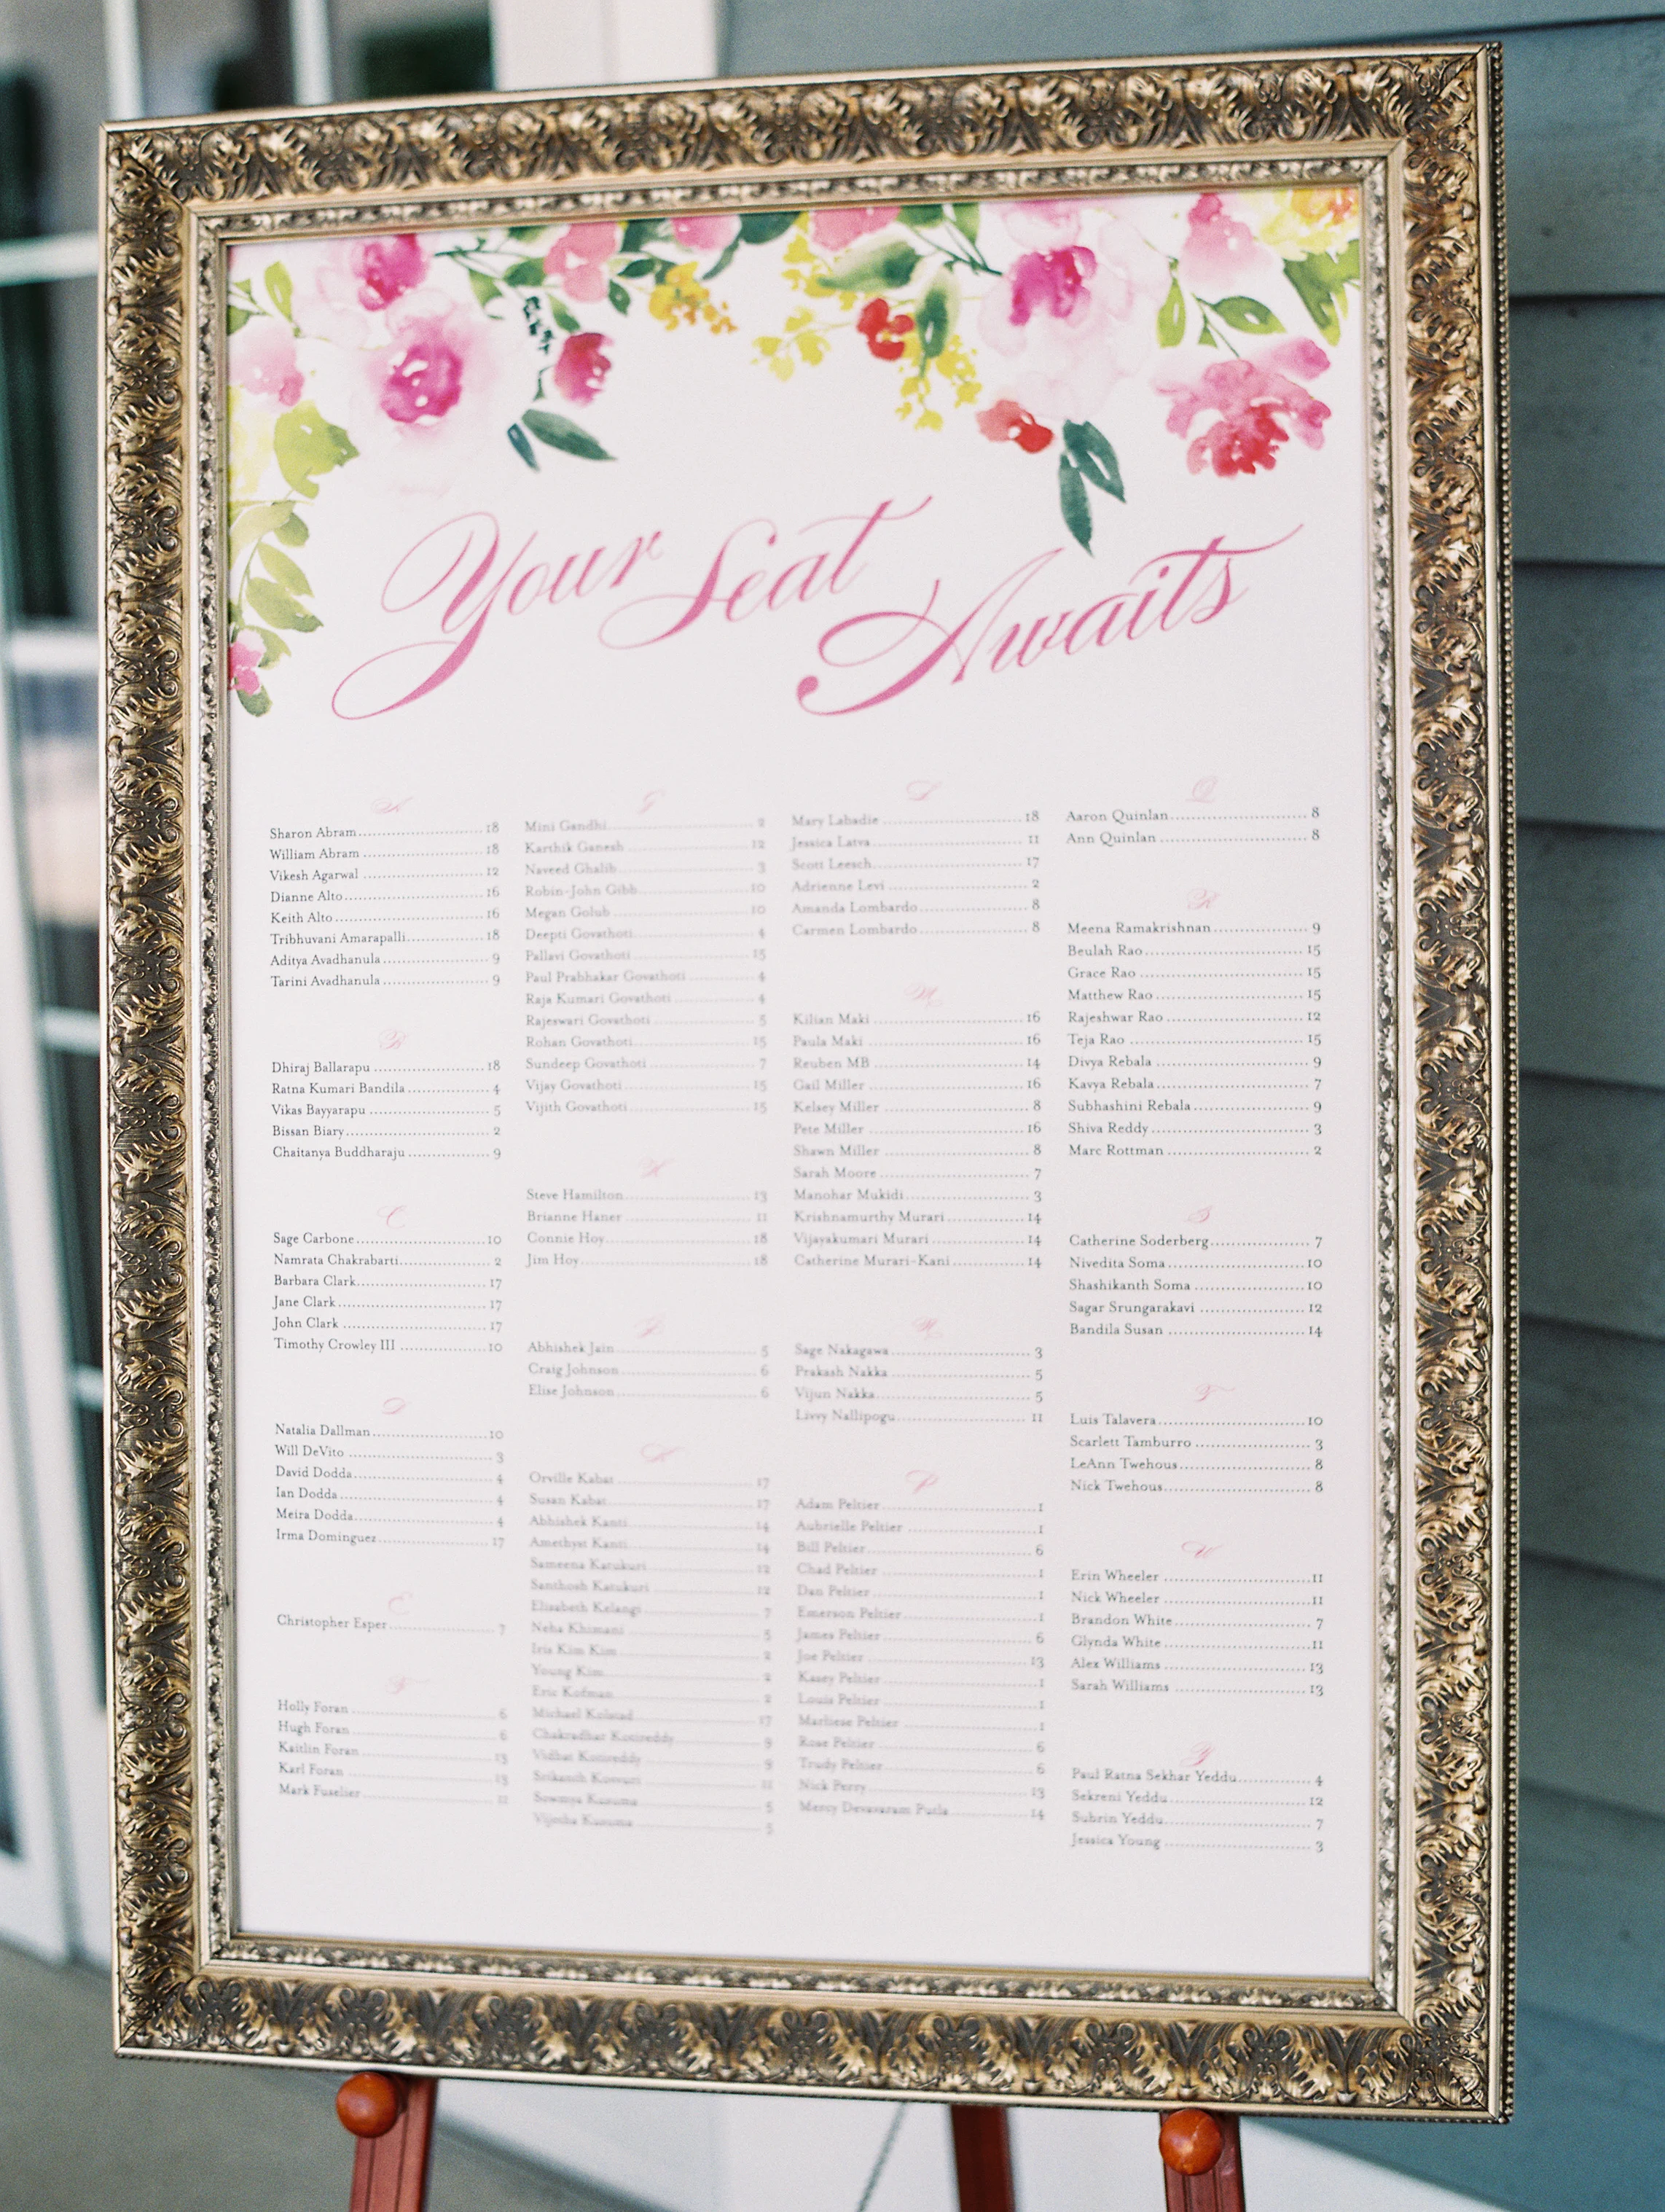 Your Seat
Awaits
A
Sharon Abram 18
William Abram 18
Vikesh Agarwal 12
Dianne Alto 16
Keith Alto 16
Tribhuvani Amarapalli 18
Aditya Avadhanula 9
Tarini Avadhanula 9
B
Dhiraj Ballarapu 18
Ratna Kumari Bandila 4
Vikas Bayyarapu 5
Bissan Biary 2
Chaitanya Buddharaju 9
C
Sage Carbone 10
Namrata Chakrabarti 2
Barbara Clark 17
Jane Clark 17
John Clark 17
Timothy Crowley III 10
D
Natalia Dallman 10
Will DeVito 3
David Dodda 4
Ian Dodda 4
Meira Dodda 4
Irma Dominguez 17
E
Christopher Esper 7
F
Holly Foran 6
Hugh Foran 6
Kaitlin Foran 13
Karl Foran 13
Mark Fuselier 11
G
Mini Gandhi 2
Karthik Ganesh 12
Naveed Ghalib 3
Robin-John Gibb 10
Megan Golub 10
Deepti Govathoti 4
Pallavi Govathoti 15
Paul Prabhakar Govathoti 4
Raja Kumari Govathoti 4
Rajeswari Govathoti 5
Rohan Govathoti 15
Sundeep Govathoti 7
Vijay Govathoti 15
Vijith Govathoti 15
H
Steve Hamilton 13
Brianne Haner 11
Connie Hoy 18
Jim Hoy 18
J
Abhishek Jain 5
Craig Johnson 6
Elise Johnson 6
K
Orville Kabat 17
Susan Kabat 17
Abhishek Kanti 14
Amethyst Kanti 14
Sameena Katukuri 12
Santhosh Katukuri 12
Elisabeth Kelangi 7
Neha Khimani 5
Iris Kim Kim 2
Young Kim 2
Eric Kofman 2
Michael Kolstad 17
Chakradhar Kotireddy 9
Vidhat Kotireddy 9
Srikanth Kosuri 11
Sowmya Kusuma 5
Kusuma 5
L
Mary Labadie 18
Jessica Latva 11
Scott Leesch 17
Adrienne Levi 2
Amanda Lombardo 8
Carmen Lombardo 8
M
Kilian Maki 16
Paula Maki 16
Reuben MB 14
Gail Miller 16
Kelsey Miller 8
Pete Miller 16
Shawn Miller 8
Sarah Moore 7
Manohar Mukidi 3
Krishnamurthy Murari 14
Vijayakumari Murari 14
Catherine Murari-Kani 14
N
Sage Nakagawa 3
Prakash Nakka 5
Vijun Nakka 5
Livvy Nallipogu 11
P
Adam Peltier 1
Aubrielle Peltier 1
Bill Peltier 6
Chad Peltier 1
Dan Peltier 1
Emerson Peltier 1
James Peltier 6
Joe Peltier 13
Kasey Peltier 1
Louis Peltier 1
Marliese Peltier 1
Rose Peltier 6
Trudy Peltier 6
Nick Perry 13
Mercy Devavaram Putla 14
Q
Aaron Quinlan 8
Ann Quinlan 8
R
Meena Ramakrishnan 9
Beulah Rao 15
Grace Rao 15
Matthew Rao 15
Rajeshwar Rao 12
Teja Rao 15
Divya Rebala 9
Kavya Rebala 7
Subhashini Rebala 9
Shiva Reddy 3
Marc Rottman 2
S
Catherine Soderberg 7
Nivedita Soma 10
Shashikanth Soma 10
Sagar Srungarakavi 12
Bandila Susan 14
T
Luis Talavera 10
Scarlett Tamburro 3
LeAnn Twehous 8
Nick Twehous 8
W
Erin Wheeler 11
Nick Wheeler 11
Brandon White 7
Glynda White 11
Alex Williams 13
Sarah Williams 13
Y
Paul Ratna Sekhar Yeddu 4
Sekreni Yeddu 12
Subrin Yeddu 7
Jessica Young 3